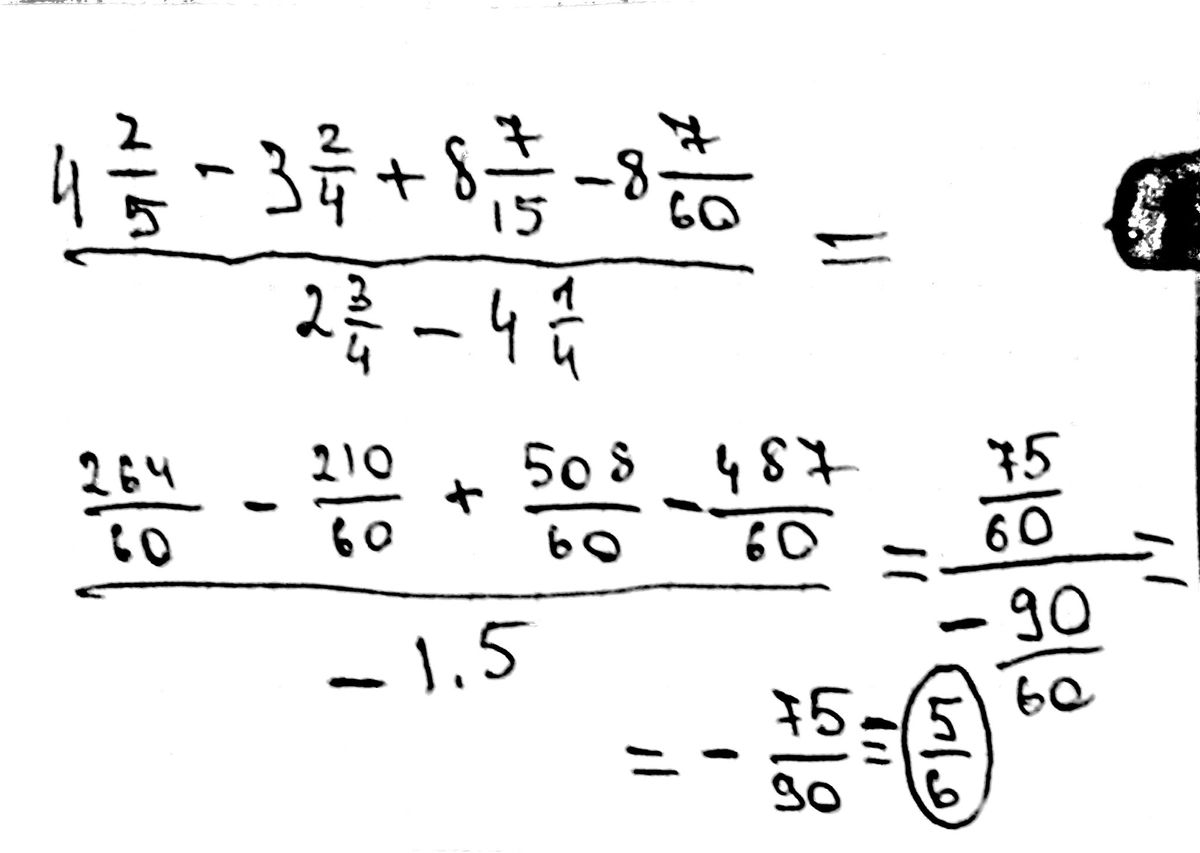 4 2/5 - 3 2/4 + 8 7/15 - 8 7/60 =
2 3/4 - 4 1/4
264/60 - 210/60 + 508/60 - 487/60 = 75/60 =
-1.5 - 90/60
= - 75/90 = - 5/6